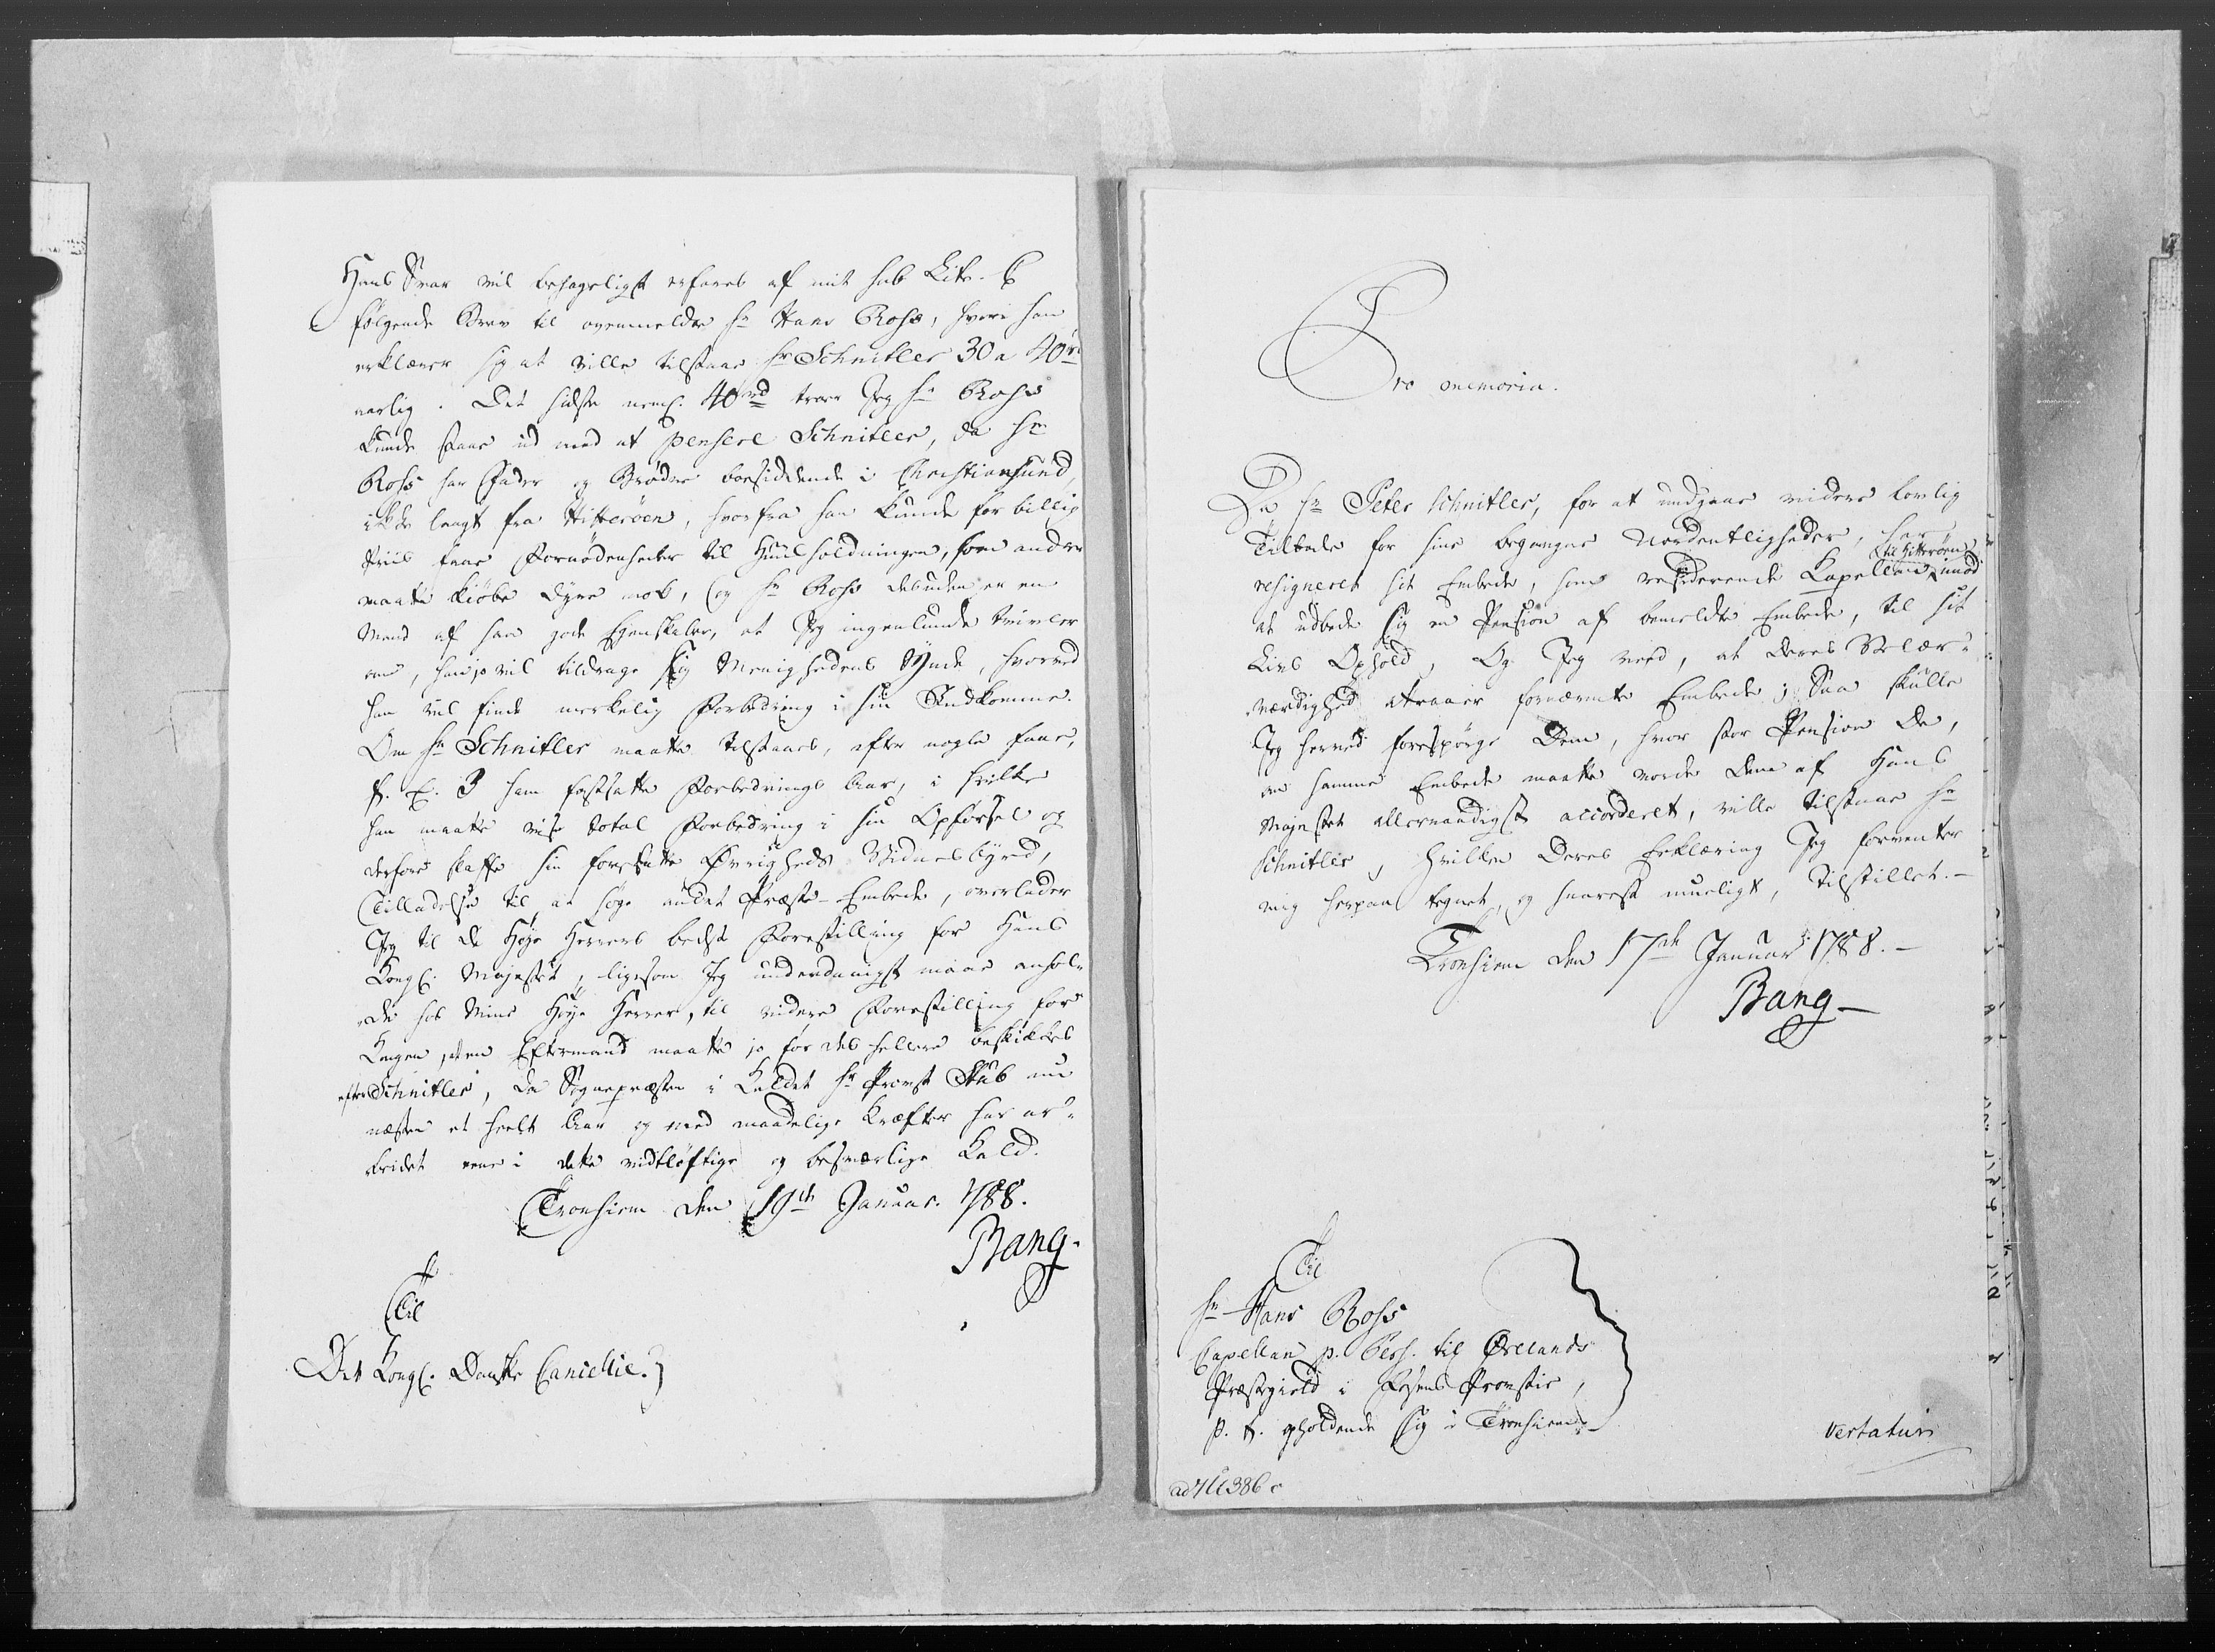 Hans Svar vil behageligst erfares af mit sub Litr. C
følgende Brev til ovenmeldte Hr Hans Ross, hvori han
erklærer sig at ville tilstaae Hr Schnitler 30 a 40 rd
aarlig. Det sidste neml. 40 rd troer Jeg Hr Ross
kunde staae ud med at pensere Schnitler, da Hr
Ross har Fader og Brødre boesiddende i Christiansund,
ikke langt fra Hitterøen, hvorfra han kunde for billig
Priis faae Fornødenheder til Huusholdningen, som andre
maatte kiøbe dyre nok, og Hr Ross desuden er en
Mand af saa gode Egenskaber, at Jeg ingenlunde tvivler
om, han jo vil tildrage sig Menighedens Yndest, hvorved
han vil finde merkelig Forbedring i sin Indkomme.
Om Hr Schnitler maatte tilstaaes, efter nogle faae,
f. E. 3 ham fastsatte Forbedrings Aar, i hvilke
han maatte vise total Forbedring i sin Opførsel og
derfore skaffe sin foresatte Øvrigheds Vidnesbyrd,
Tilladelse til at søge andet Præste-Embede, overlader
Jeg til de Høye Herrers bedste Forestilling for Hans
Kongl. Majestet, ligesom Jeg underdanigst maae anhol-
de hos Mine Høye Herrer, til videre Forestilling for
Kongen, at en Eftermand maatte jo før des hellere beskikkes
efter Schnitler, da Sognepræsten i Kaldet Hr Provst Stub nu
næsten et heelt Aar og med maadelige Kræfter har ar-
beidet eene i dette vidtløftige og besværlige Kald.
Tronhiem den 19de Januar. 1788.
Bang.
Til
Det Kongl. Danske Cancellie.
Pro memoria.
Da Hr Peter Schnitler, for at undgaae videre lovlig
Tiltale for sine begangne Uordentligheder, har
resigneret sit Embede, som residerende Capellan til Hitterøen, imod
at udbede sig en Pension af bemeldte Embede, til sit
Livs Ophold, Og Jeg veed, at Deres Velær-
værdighed attraaer fornævnte Embede; Saa skulle
Jeg herved forespørge Dem, hvor stor Pension De,
om samme Embede maatte vorde Dem af Hans
Majestet allernaadigst accorderet, ville tilstaae Hr
Schnitler, hvilken Deres Erklæring Jeg forventer
mig herpaa tegnet, og snarest mueligt, tilstillet.-
Tronhiem den 17de Januar 1788.-
Bang-
Til
Hr Hans Ross
Capellan p. Pers. til Ørelands
Præstegield i Fosens Provstie,
p. t. opholdende sig i Tronhiem.-
vertatur